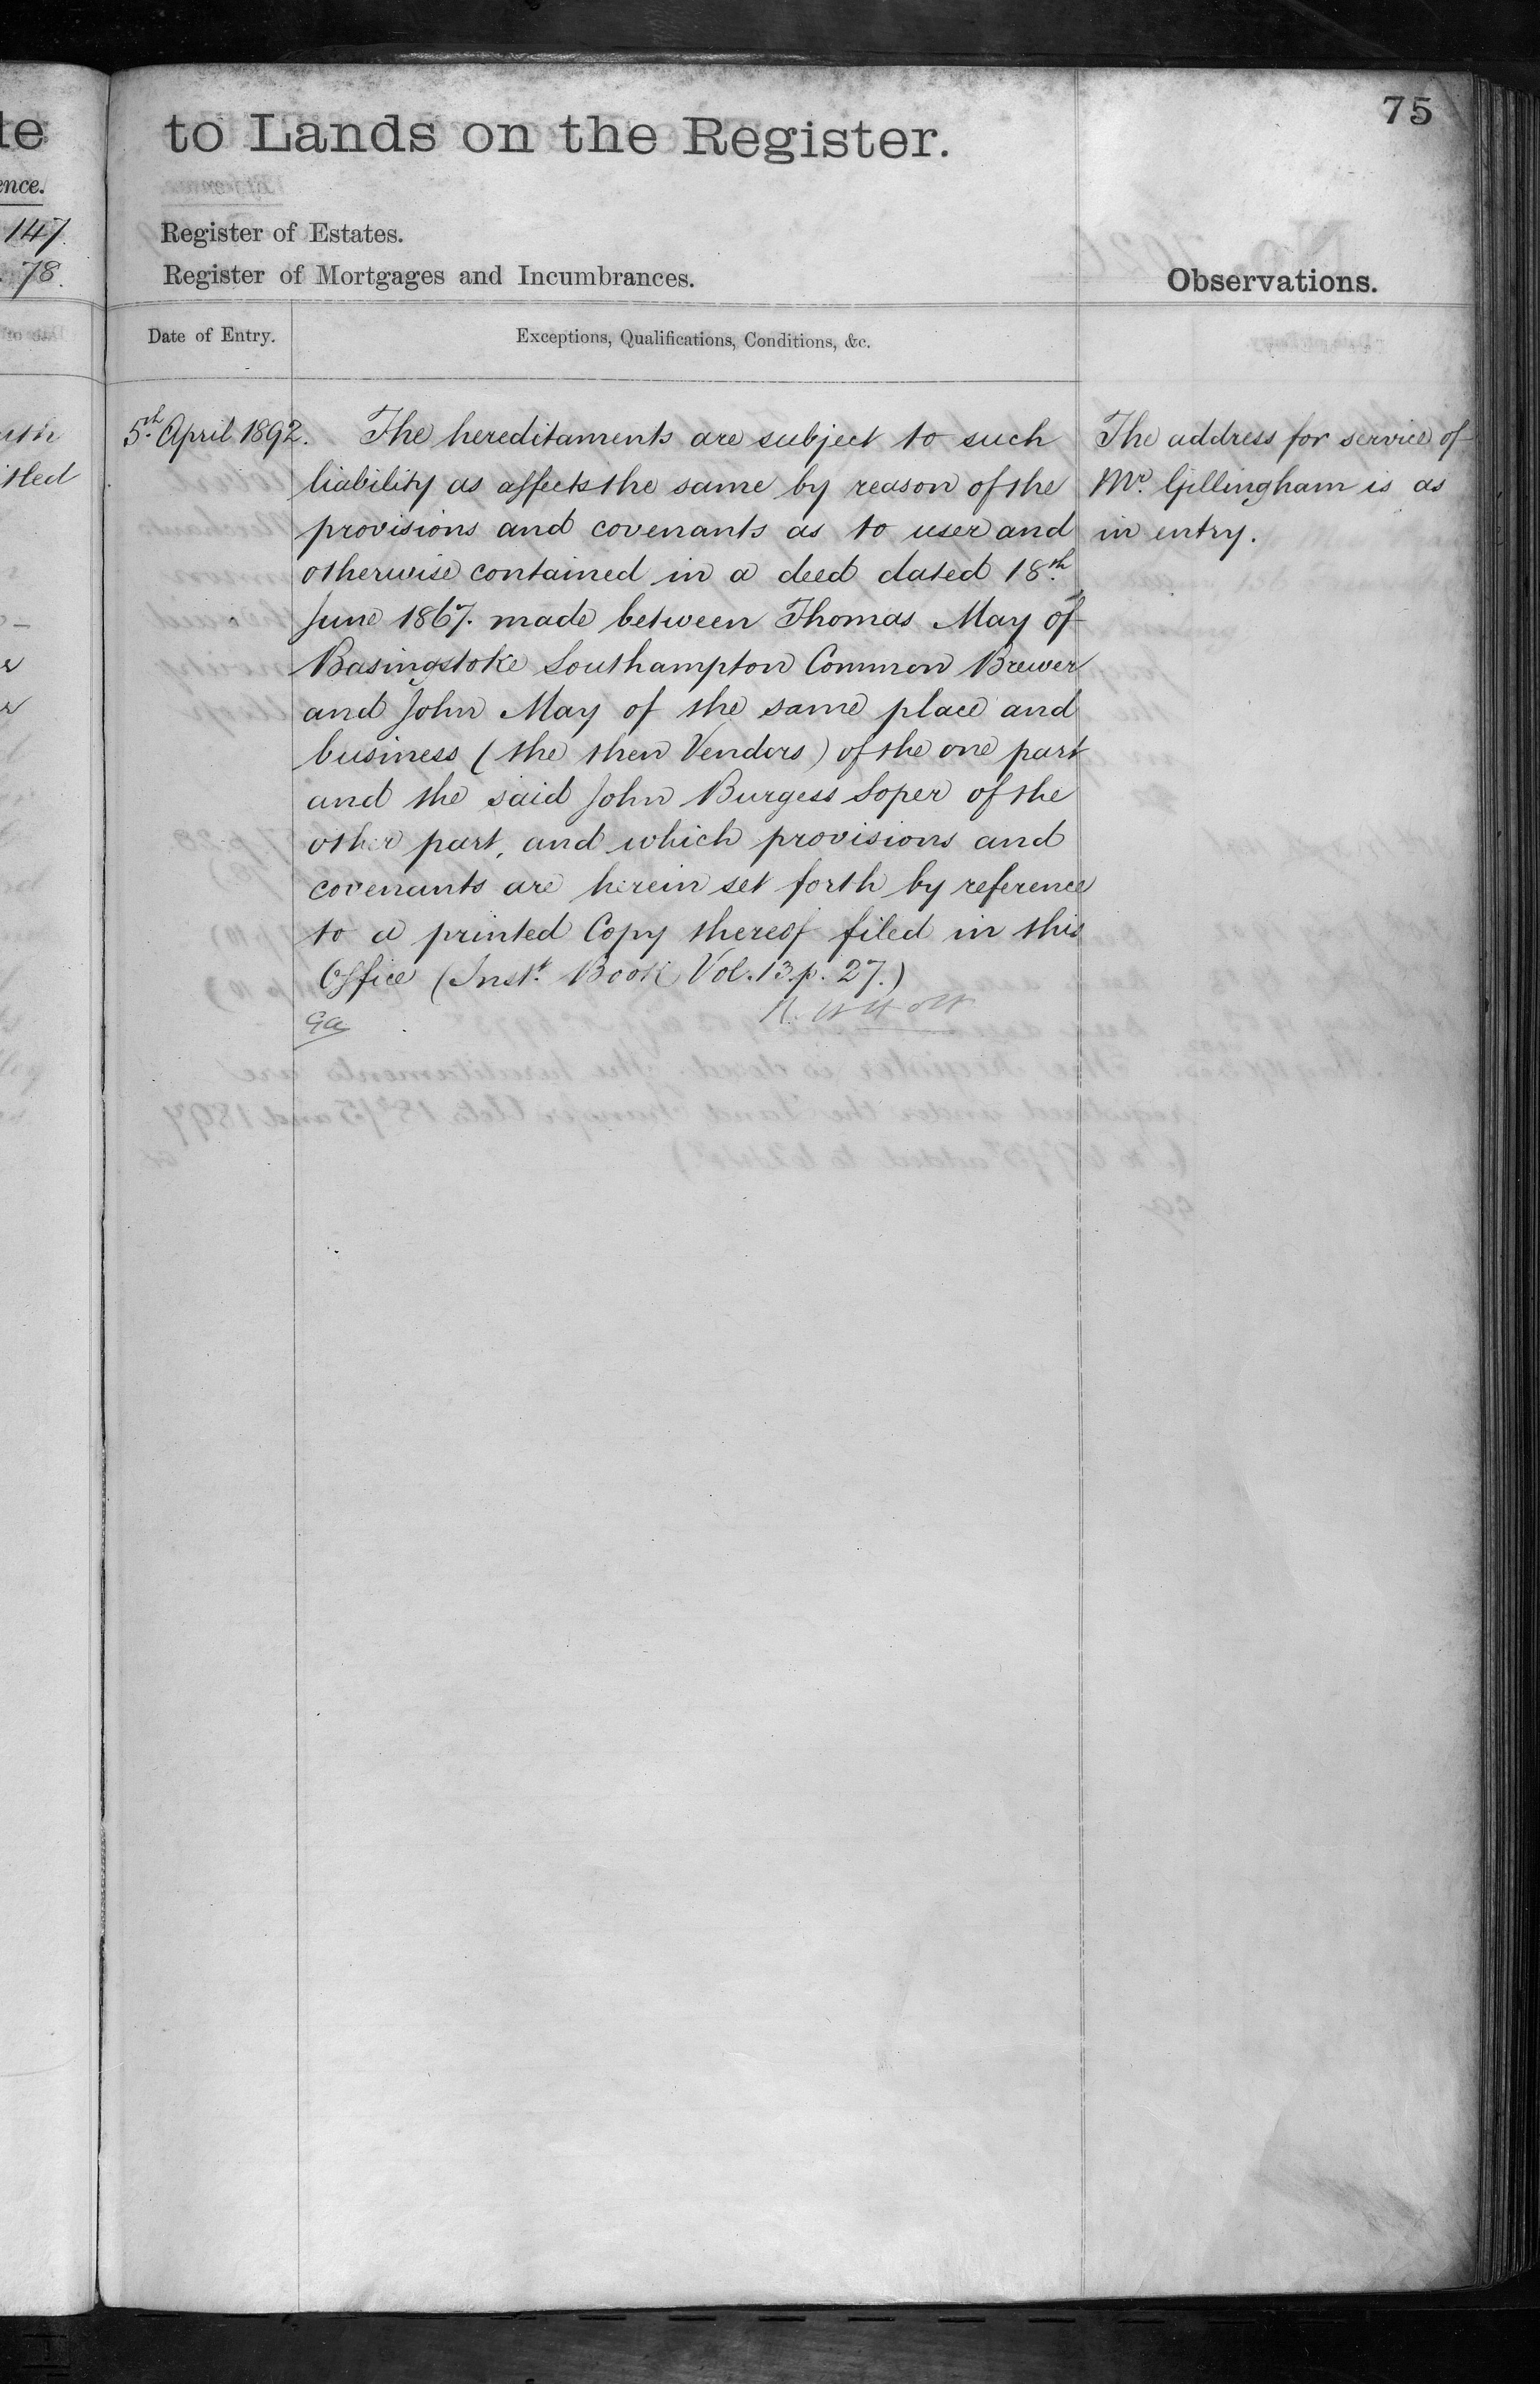 75
te
to Lands on the Register.
ence.
147.
Register of Estates.
78.
Register of Mortgages and Incumbrances.
Observations.
Date of Entry.
Exceptions, Qualifications, Conditions, &c.
5th April 1892.
The hereditaments are subject to such
liability as affects the same by reason of the
provisions and covenants as to user and
otherwise contained in a deed dated 18th
June 1867. made between Thomas May of
Basingstoke Southampton Common Brewer
and John May of the same place and
business (the then Vendors) of the one part
and the said John Burgess Soper of the
other part, and which provisions and
covenants are herein set forth by reference
to a printed Copy thereof filed in this
Office (Inst. Book Vol. 13 p. 27.)
The address for service of
Mr. Gillingham is as
in entry.